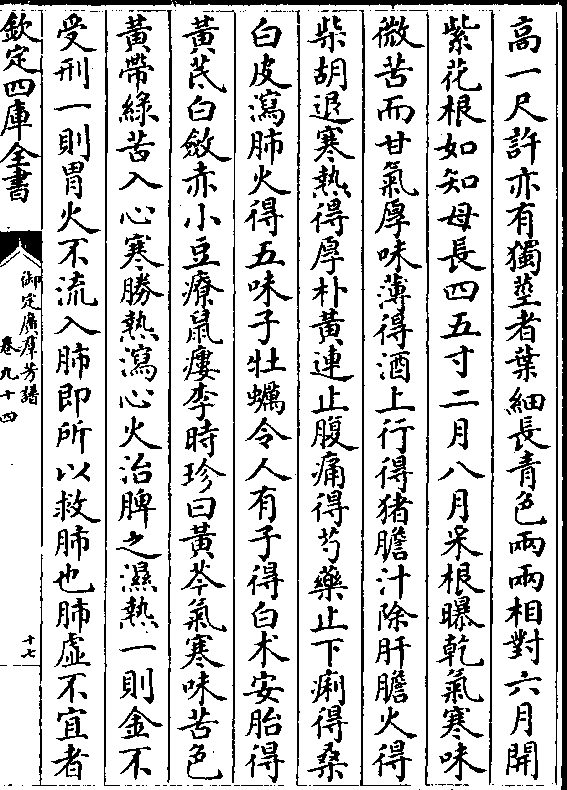 高一尺許亦有獨莖者葉細長青色兩兩相對六月開
紫花根如知母長四五寸二月八月采根曝乾氣寒味
微苦而甘氣厚味薄得酒上行得猪膽汁除肝膽火得
柴胡退寒熱得厚朴黃連止腹痛得芍藥止下痢得桑
白皮瀉肺火得五味子牡蠣令人有子得白术安胎得
黃芪白斂赤小豆療鼠瘻李時珍曰黃芩氣寒味苦色
黃帶綠苦入心寒勝熱瀉心火治脾之濕熱一則金不
受刑一則胃火不流入肺即所以救肺也肺虛不宜者
欽定四庫全書
御定廣羣芳譜
卷九十四
十七